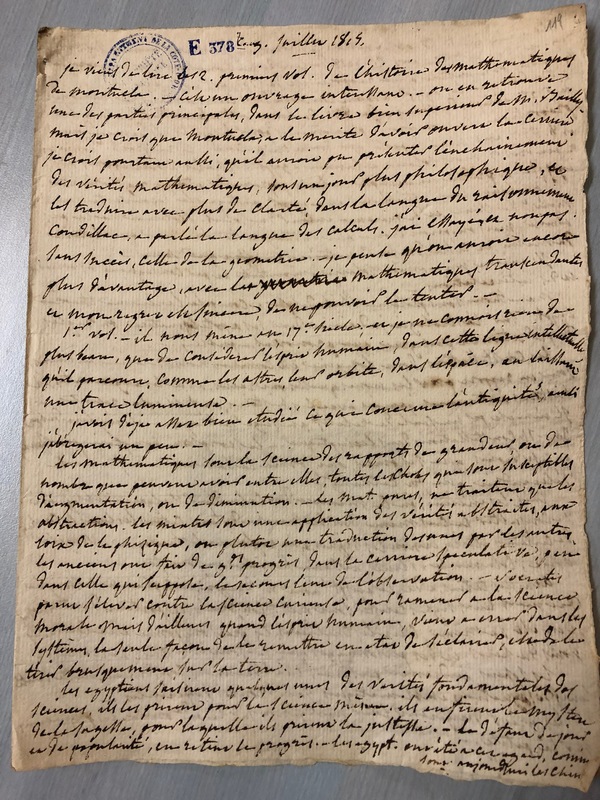 119
E 378
Juillet 1815.
je viens de lire les 2. premiers vol. de l'histoire des mathematiques
de montucla. – C'est un ouvrage interessant. – on en retrouve
une des parties principales, dans le livre bien superieur de M. Bailly
mais je crois que montucla, a le merite d'avoir ouvert la carriere
je crois pourtant aussi, qu'il auroit pu présenter l'enchainement
des vérités mathematiques, sous un jour plus philosophique, et
les traduire avec plus de clarté, dans la langue du raisonnement
Condillac, a parlé la langue des calculs. j'ai essayé et non pas
sans succès, celle de la geometrie. – je pense qu'on auroit encore
plus d'avantage, avec les mathematiques transcendantes
et mon regret est sincere de ne pouvoir le tenter. –
1er vol. – il nous mene au 17e siecle. et je ne connois rien de
plus beau, que de considerer l'esprit humain, dans cette ligne intellectuelle
qu'il parcourt, comme les astres, leur orbite, dans l'espace, en laissant
une trace lumineuse. –
j'avois déja assez bien etudié ce qui concerne l'antiquité, aussi
j'abregerai un peu. –
les mathematiques sont la science des rapports de grandeur, ou de
nombre que peuvent avoir entre elles, toutes les choses qui sont susceptibles
d'augmentation, ou de diminution. – les mat. pures, ne traitent que les
abstractions. les mixtes sont une application des vérités abstraites, aux
loix de la phisique, ou plutot une traduction des unes par les autres.
les anciens ont fait de gds progrès dans la carriere speculative, peu
dans celle qui suppose, le secours lent de l'observation. – Socrate
parut s'élever contre la science curieuse, pour ramener a la science
morale mais d'ailleurs quand l'esprit humain, vient a errer dans les
systèmes, la seule façon de le remettre en etat de s'éclairer, c'est de le
tirer brusquement sur la terre.
les egyptiens saisirent quelques unes des vérités fondamentales des
sciences, ils les prirent pour la science même. ils en firent le mystère
de la sagesse, pour laquelle ils prirent la justesse. – le défaut de jour
et de popularité, en retint le progrès. – les egypt. ont été a cet egard, comme
sont aujourd'hui les Chin